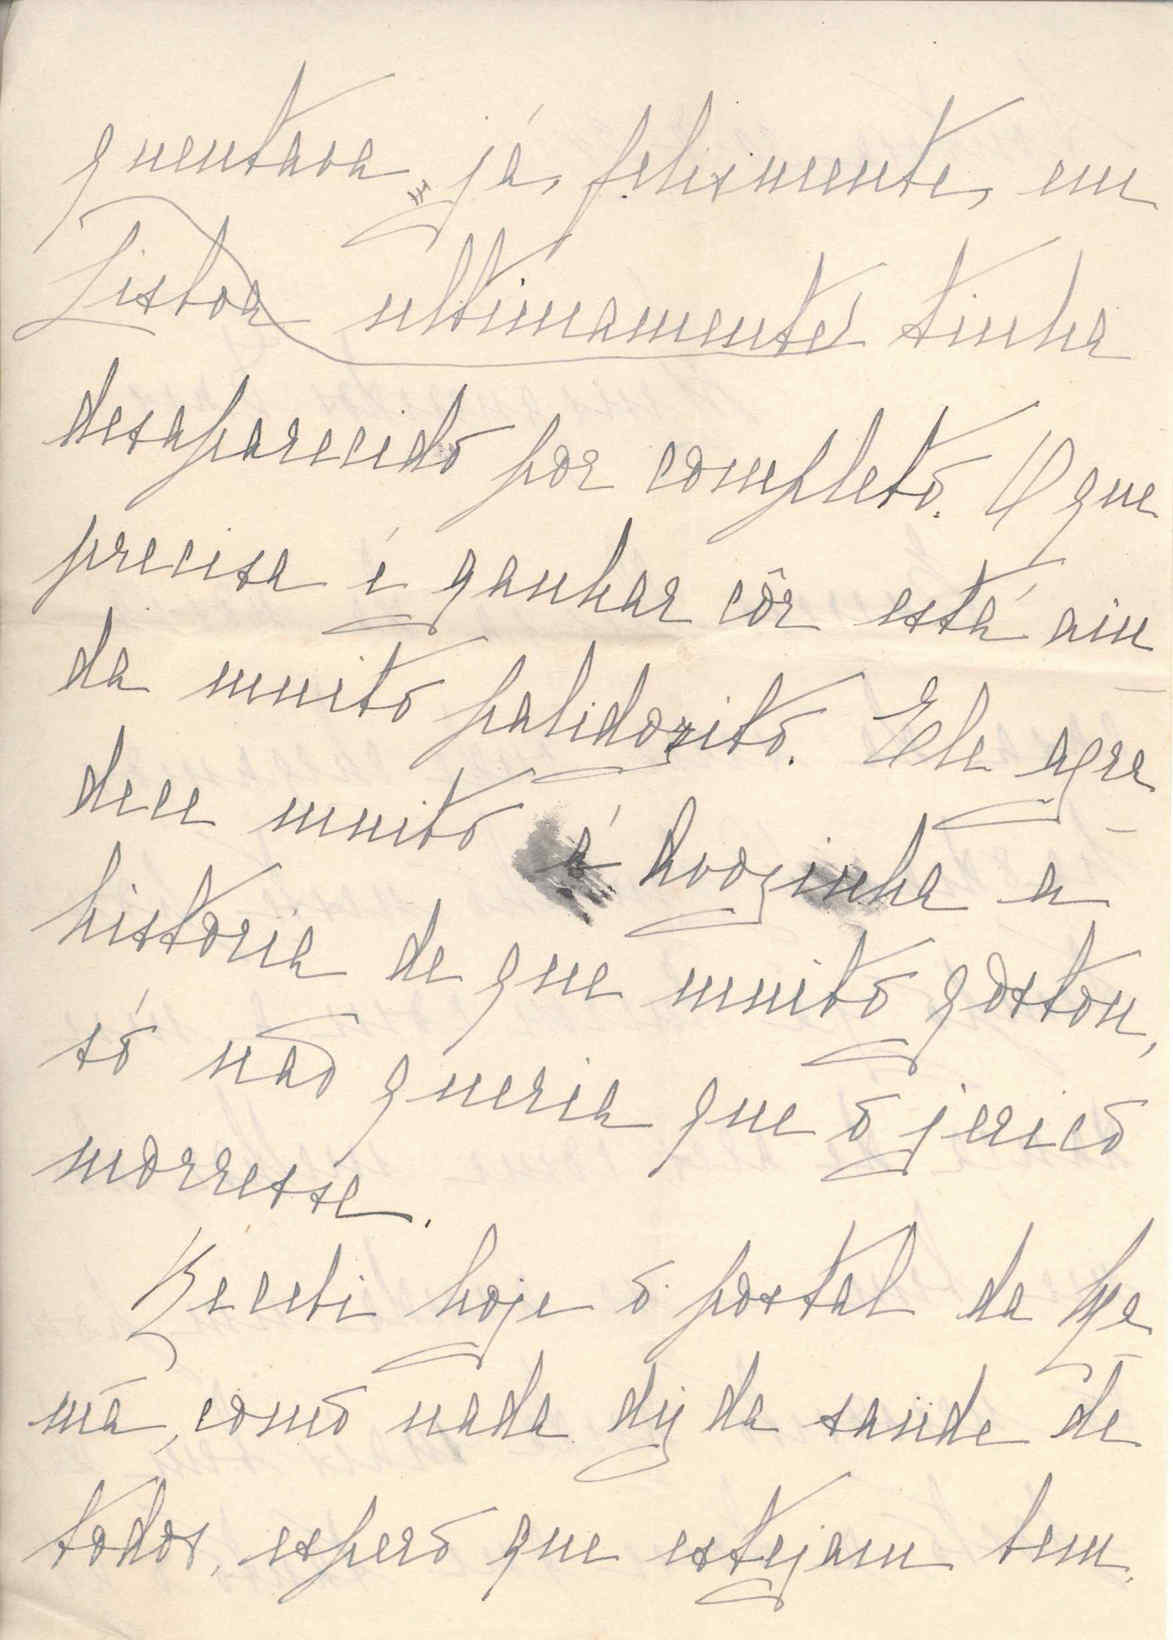 quentava, já, felismente, em
Lisboa ultimamente tinha
desaparecido por completo. O que
precisa é ganhar côr está ain
da muito palidozito. Ele agra
dece muito á Avozinha a
historia de que muito gostou,
só não queria que o jerico
morresse.
Recebi hoje o postal da Ma
mã, como nada diz da saúde de
todos, espero que estejam bem.